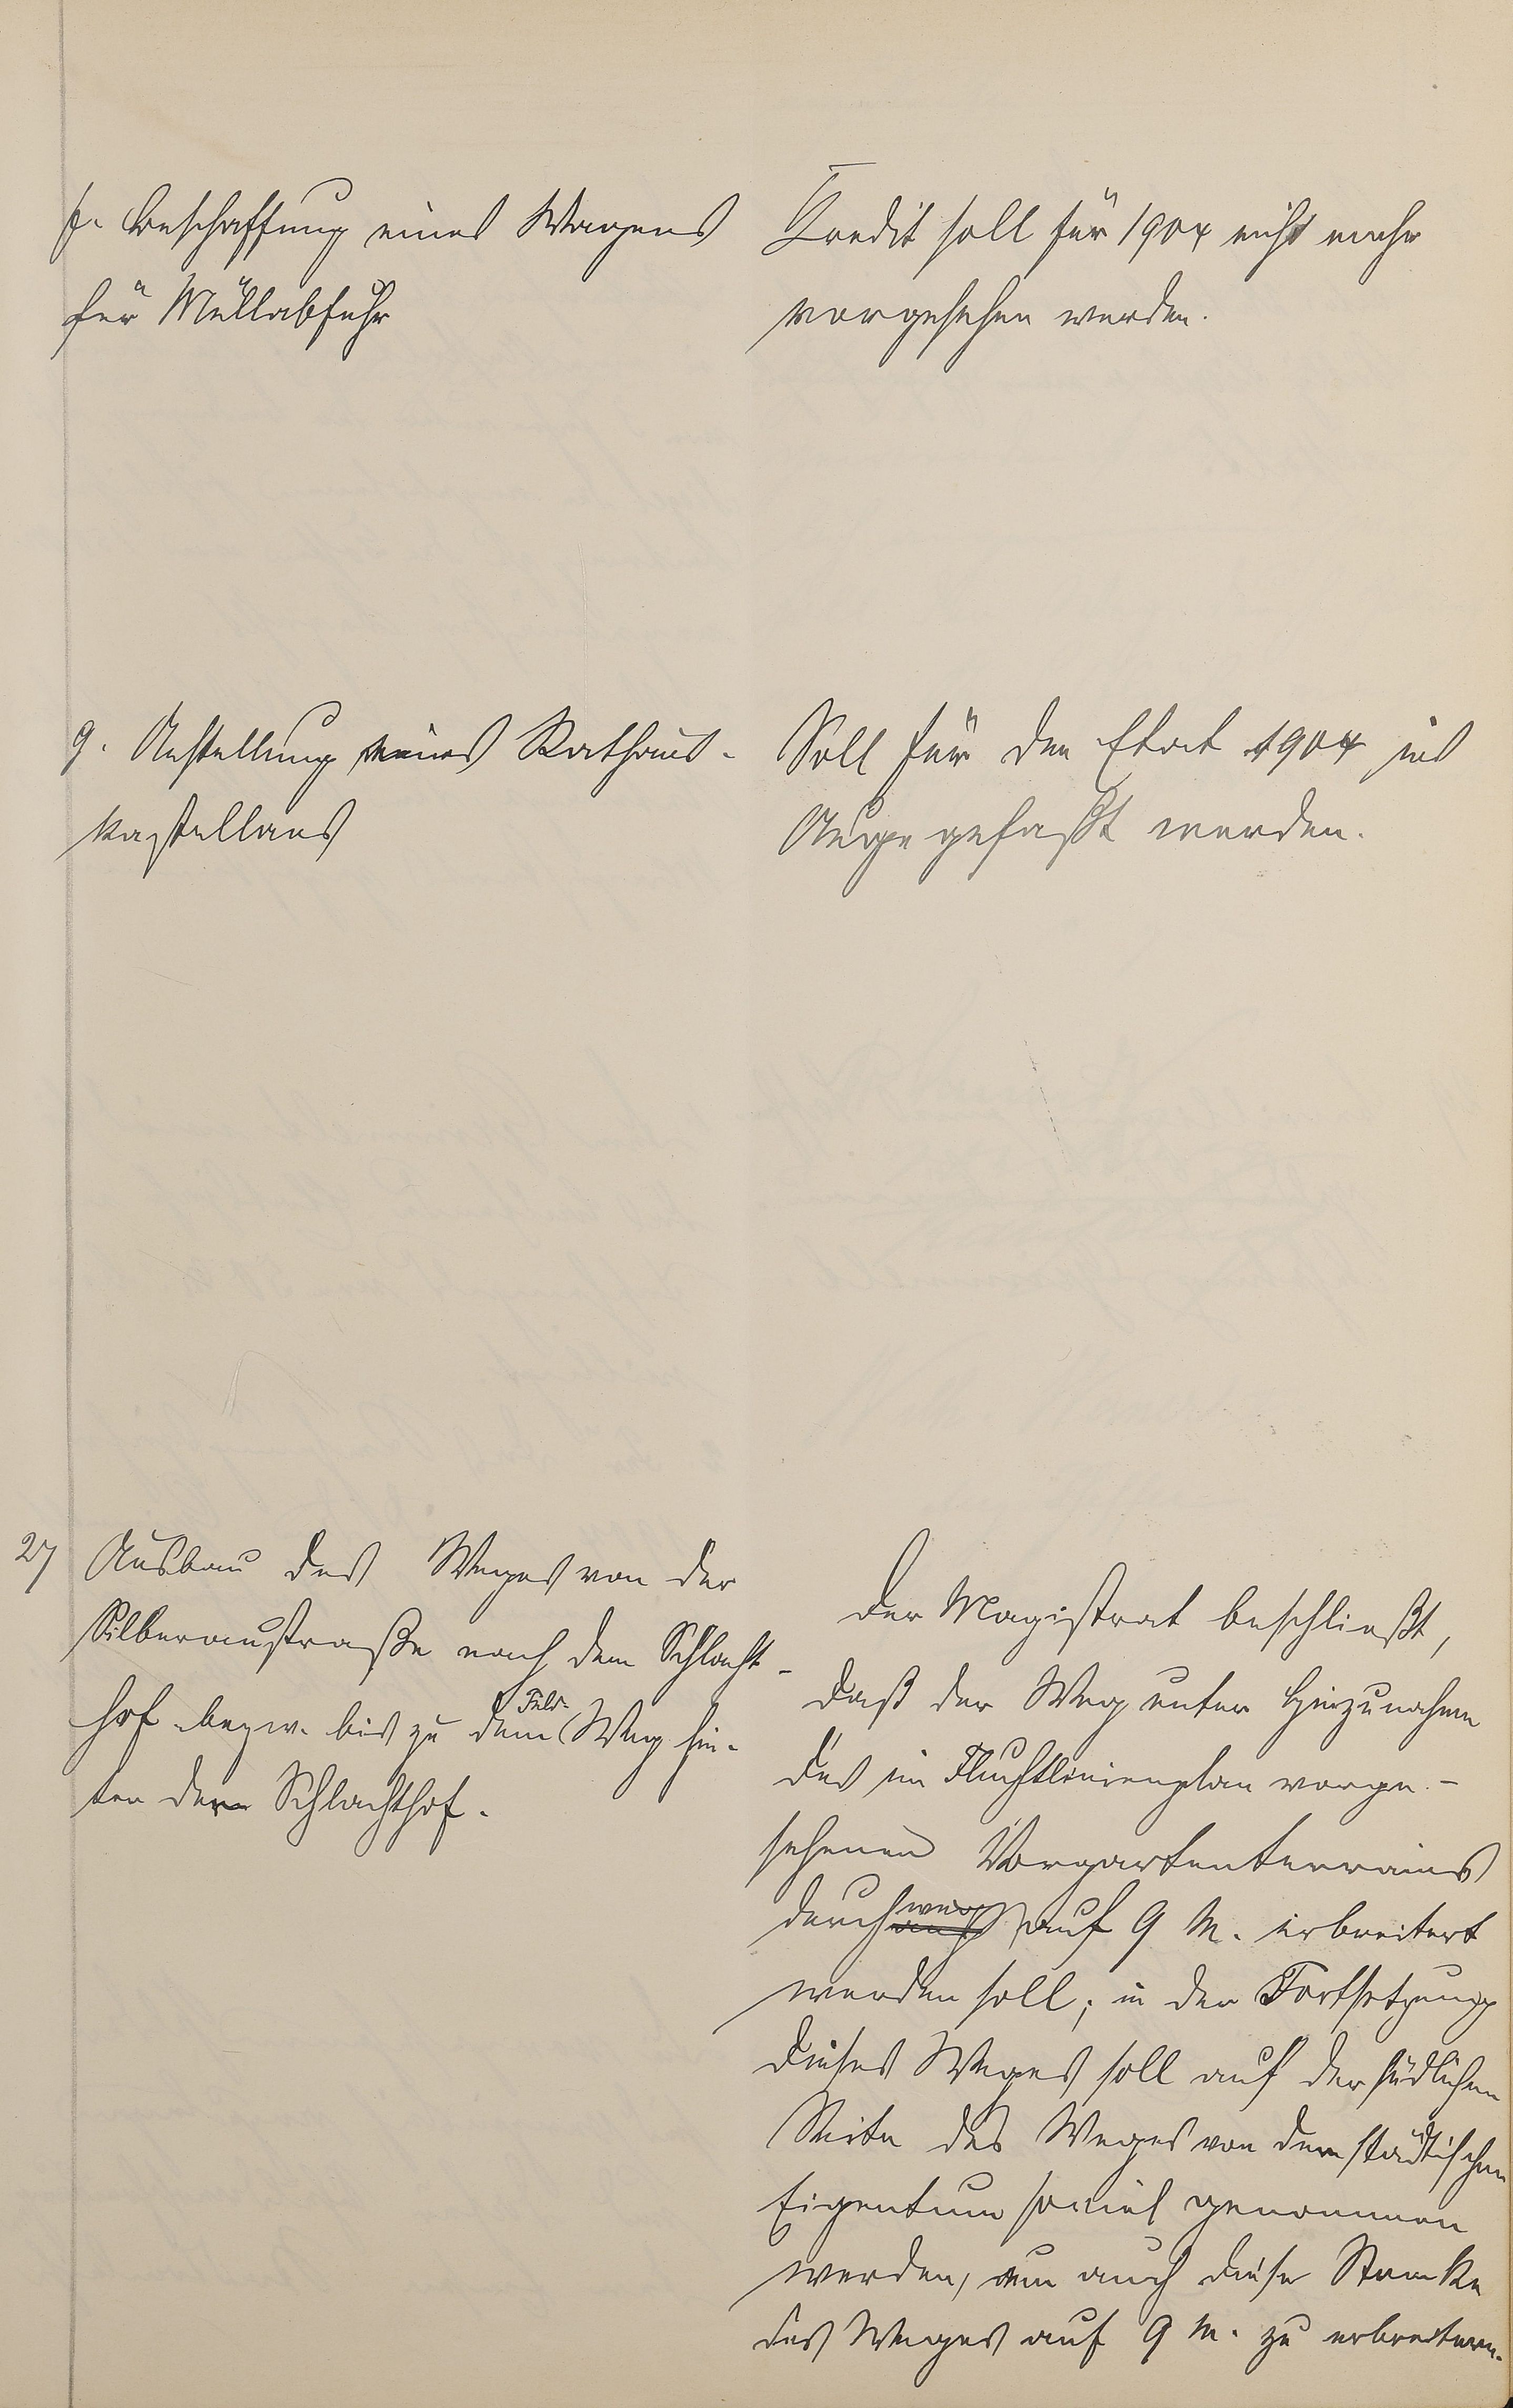 f. Beschaffung eines Wagens
für Müllabfuhr
Kredit soll für 1904 nicht mehr
vorgesehen werden.
g. Anstellung eines Rathaus-
kastellans
Soll für den Etat 1904 ins
Auge gefaßt werden.
27 Ausbau des Weges von der
Silberaustraße nach dem Schlacht-
hof bezw. bis zu dem Feld- Weg hin-
ter dem Schlachthof.
Der Magistrat beschließt,
daß der Weg unter Hinzunahme
des im Fluchtlinienplan vorge-
sehenen Vorgartenterrains
durchweg auf 9 M. erbreitert
werden soll; in der Fortsetzung
dieses Weges soll auf der südlichen
Seite des Weges von dem städtischen
Eigentum soviel genommen
werden, um auch diese Strecke
des Weges auf 9 M. zu erbreitern.